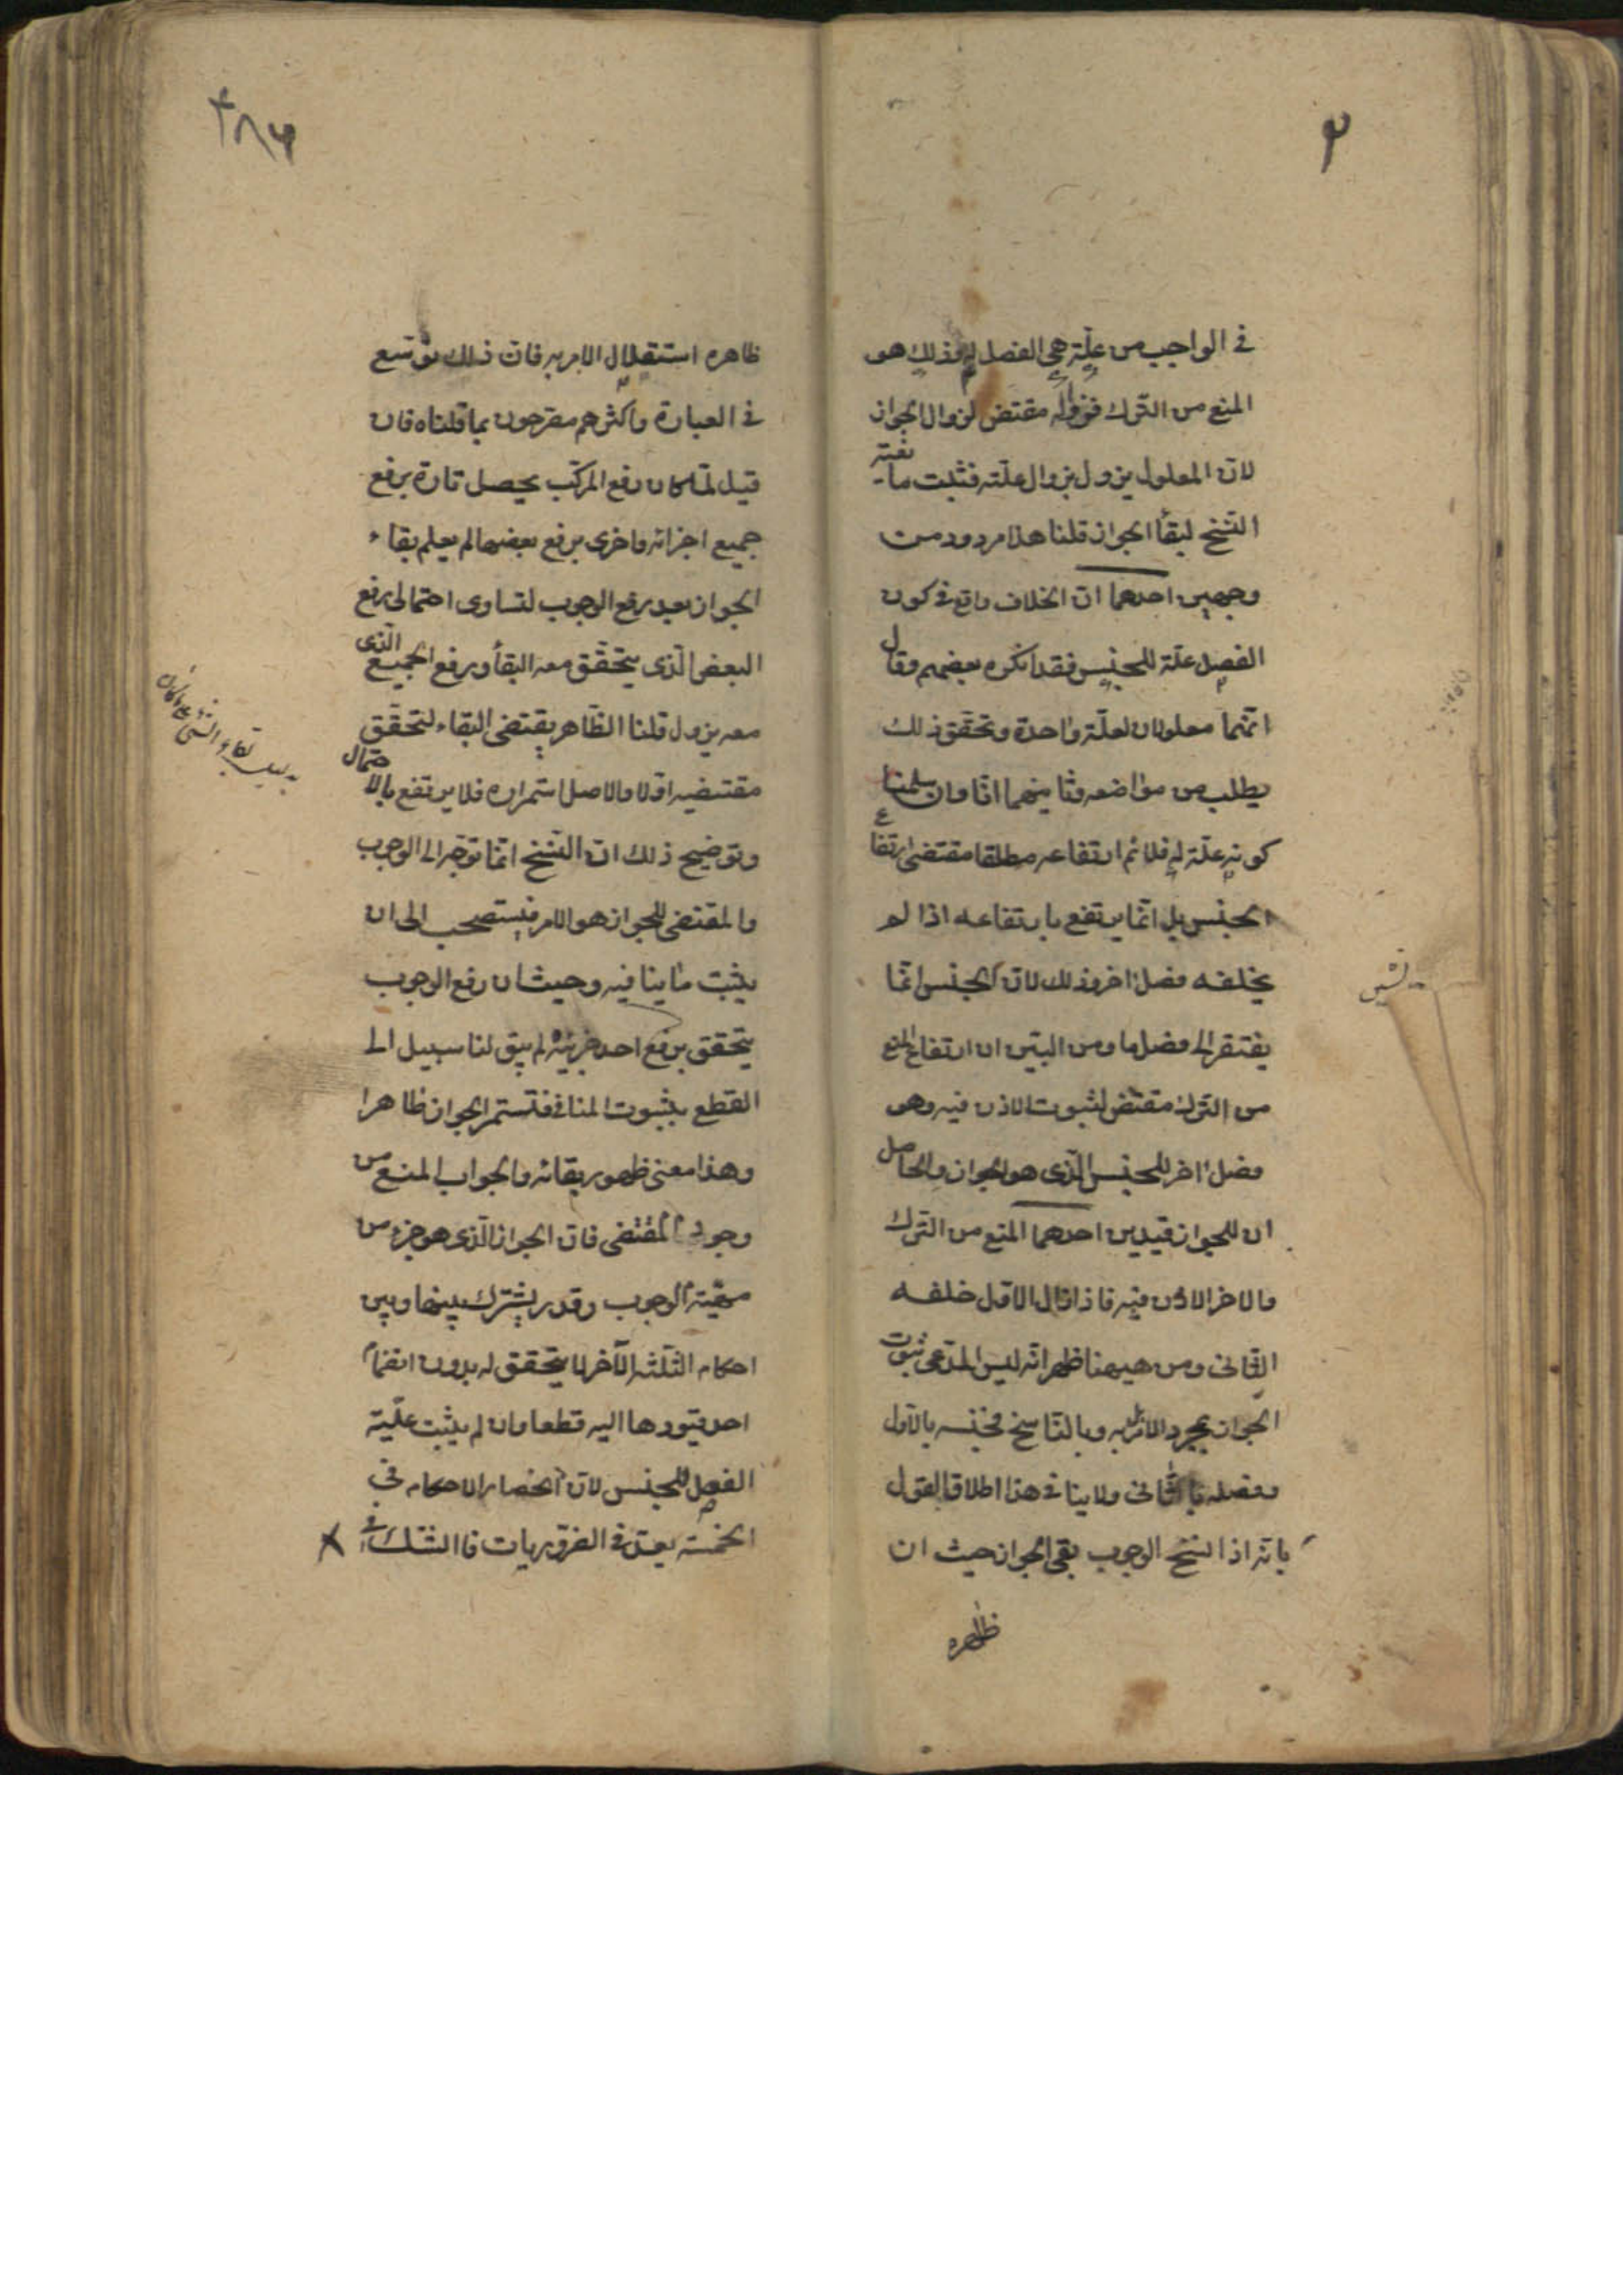 ٢
في الواجب من علّة هي الفصل له وذلك هو
المنع من الترك فزواله مقتض لزوال الجواز
لانّ المعلول يزول بزوال علّته فثبت ما
التنسخ لبقأ الجواز قلنا هذا مردود من
وجهين احدهما انّ الخلاف واقع في كون
الفصل علّة للجنس فقد انكره بعضهم وقال
انّهما معلولان لعلّة واحدة وتحقّق ذلك
يطلب من مواضعه وثانيهما انّا وان سلمنا
كونه علّة له فلا نم ارتفاعه مطلقا مقتضى ارتفاع
الجنس بل انّما يرتفع بارتفاعه اذا لم
يخلفه فصل اخر وذلك لانّ الجنس انّما
يفتقر الى فصل ما ومن البيّن ان ارتفاع المنع
من الترك مقتض لثبوت الاذن فيه وهو
فصل اخر للجنس الّذى هو الجواز والحاصل
ان للجواز قيدين احدهما المنع من الترك
والاخر الاذن فيه فاذا زال الاوّل خلفه
الثّانى ومن هيهنا ظهر انّه ليس المدّعى ثبوت
الجواز بمجرد الامر به وبالنّاسخ فجنسه بالاوّل
وفصله بالثّانى ولا ينافي هذا اطلاق القول
بانّه اذا نسخ الوجوب بقى الجواز حيث ان
ظاهره
٣٨٦
ظاهره استقلال الامر به فانّ ذلك توّسع
في العبارة واكثرهم مصرحون بما قلناه فان
قيل لمّا كان رفع المركّب يحصل تارة برفع
جميع اجزائه واخرى برفع بعضها لم يعلم بقاء
الجواز بعد رفع الوجوب لتساوى احتمالى رفع
البعض الّذى يتحقّق معه البقأ ورفع الجميع الّذى
معه يزول قلنا الظّاهر يقتضى البقاء لتحقّق
مقتضيه اوّلا والاصل استمراره فلا يرتفع بالاحتمال
وتوضيح ذلك انّ النّسخ انّما توجّه الى الوجوب
والمقتضى للجواز هو الامر فيستصحب الى ان
يثبت ما ينافيه وحيث ان رفع الوجوب
يتحقق برفع احد جزئيه لم يبق لنا سبيل الى
القطع بثبوت المنافي فتستمر الجواز ظاهرا
وهذا معنى ظهور بقائه والجواب المنع من
وجود المقتضى فانّ الجواز الّذى هو جزء من
مهيّة الوجوب وقدر يشترك بينها وبين
احكام الثّلثه الآخر لا يتحقق له بدون انضمام
احد قيودها اليه قطعا وان لم يثبت علّية
الفصل للجنس لانّ انحصار الاحكام في
الخمسة يعدّ في الضّروريات فاالشّك في